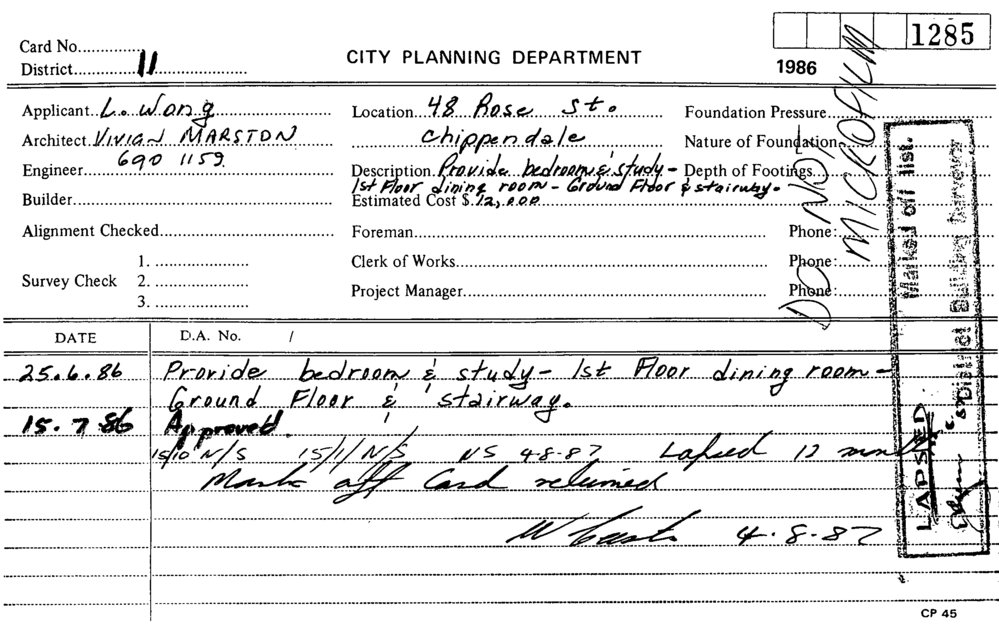 1285
Card No.
CITY PLANNING DEPARTMENT
District 11
1986
Applicant L. Wong
Location 48 Rose St.
Foundation Pressure
Architect VIVIAN MARSTON
Chippendale
Nature of Foundation
690 1159
Engineer
Description Provide bedroom & study -
Depth of Footings
1st Floor dining room - Ground Floor & stairway.
Builder
Estimated Cost $ 12,000
Alignment Checked
Foreman
Phone:
Survey Check
1.
2.
3.
Clerk of Works
Phone:
Project Manager
Phone:
DO NOT
MICROFILM
Marked off list.
District Building Surveyor
LAPSED
DATE
D.A. No. /
25.6.86 Provide bedroom & study - 1st Floor dining room -
Ground Floor & stairway.
15.7.86 Approved.
15/10 N/S 15/1/ N/S NS 4-8-87 Lapsed 12 months
Mark off Card returned
4-8-87
CP 45